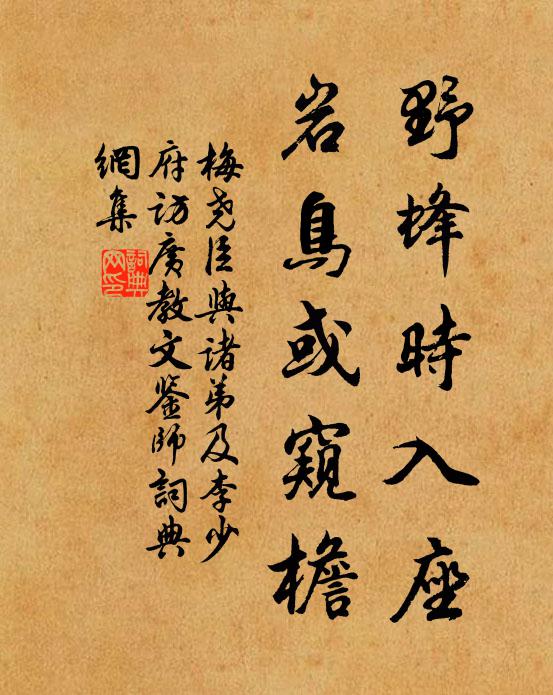 野蜂時入座
岩鳥或窺檐
梅尧臣與諸弟及李少
府訪廣教文鉴師詞典
網集
詞典
网印